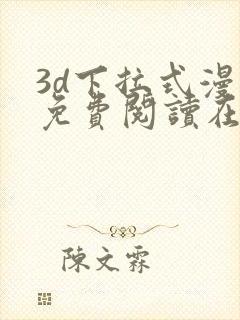 3d下拉式漫
免費閱讀在
陳文霖